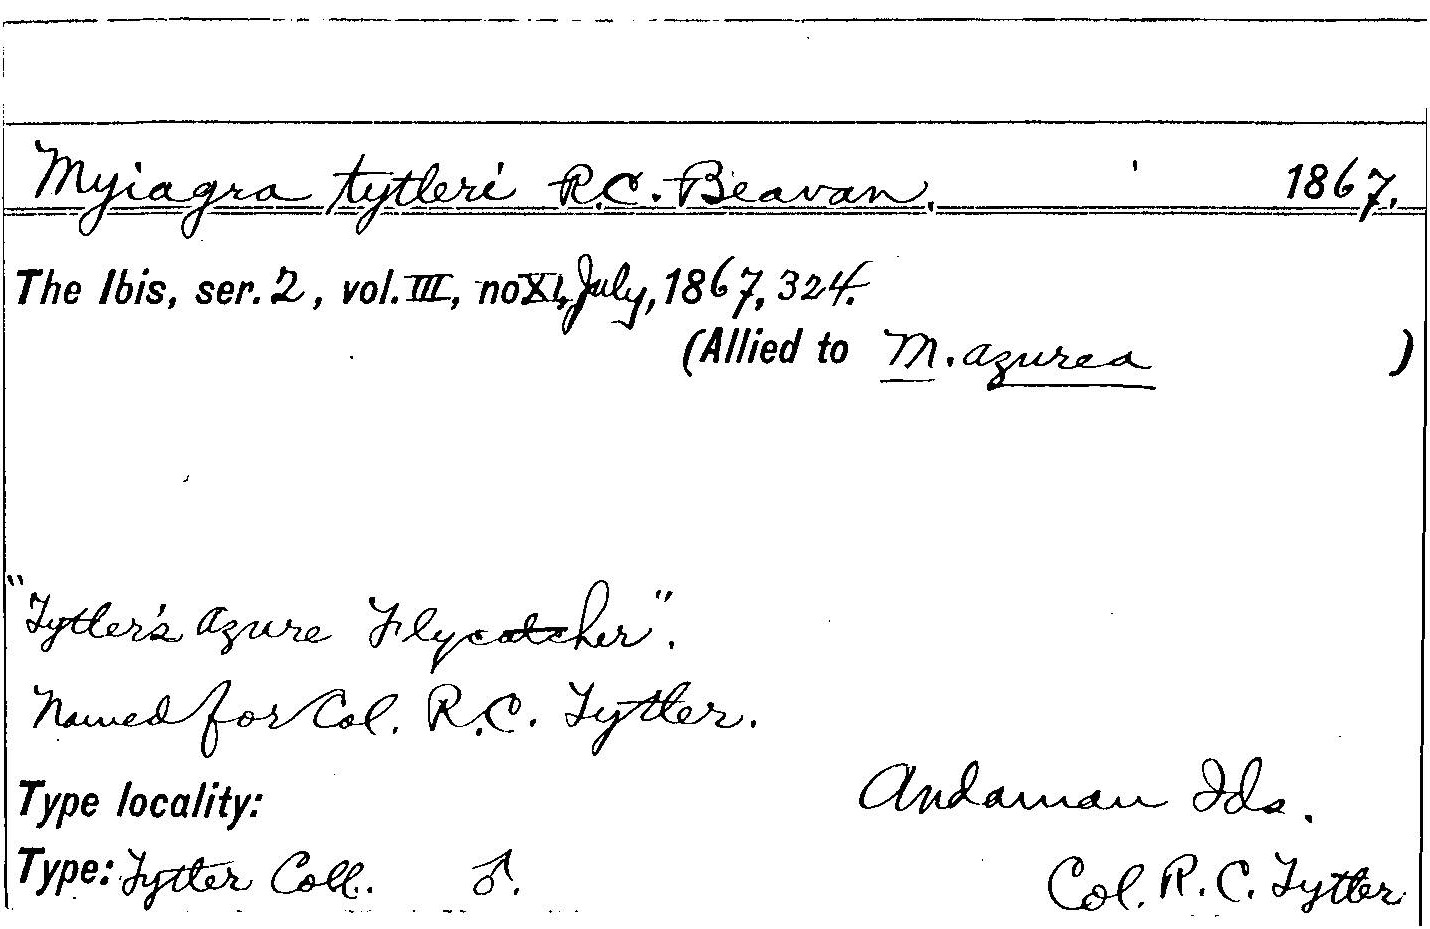 Myiagra tytleri R.C. Beavan. 1867.
The Ibis, ser. 2, vol. III, no XI, July, 1867, 324.
(Allied to M. azurea )
"Tytler's Azure Flycatcher".
Named for Col. R.C. Tytler.
Type locality: Andaman Ids.
Type: Tytler Coll. ♂. Col. R.C. Tytler